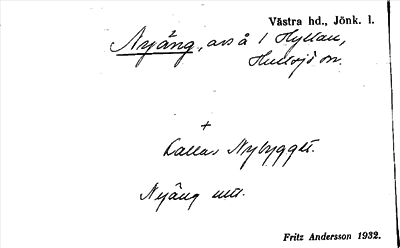 Västra hd., Jönk. l.
Nyäng, avs å 1 Hyltan,
Hultsjö sn.
+
Kallas Nybygget.
Nyäng utt.
Fritz Andersson 1932.